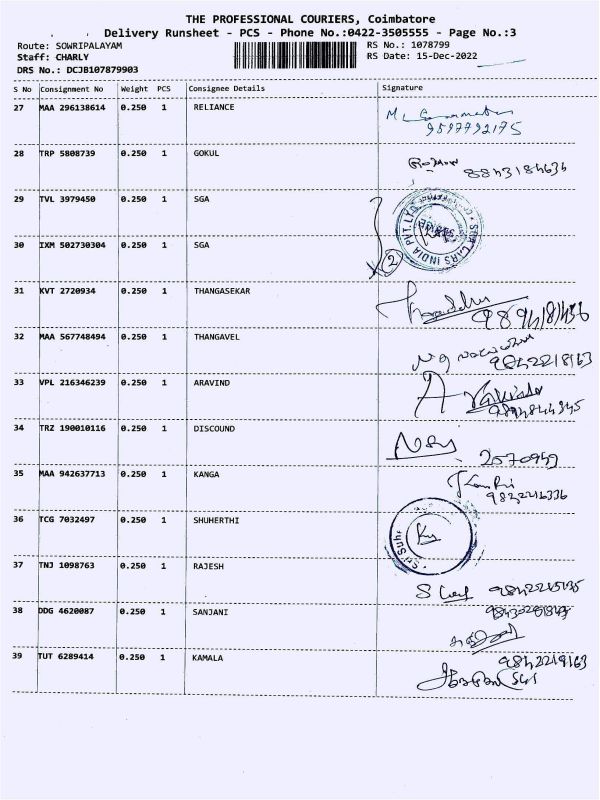 THE PROFESSIONAL COURIERS, Coimbatore
Delivery Runsheet - PCS - Phone No.:0422-3505555 - Page No.:3
Route: SOWRIPALAYAM RS No.: 1078799
Staff: CHARLY RS Date: 15-Dec-2022
DRS No.: DCJB107879903
S No Consignment No Weight PCS Consignee Details Signature
27 MAA 296138614 0.250 1 RELIANCE
9597792175
28 TRP 5808739 0.250 1 GOKUL
8843184634
29 TVL 3979450 0.250 1 SGA
CARS INDIA PVT. LTD
30 IXM 502730304 0.250 1 SGA
2
31 KVT 2720934 0.250 1 THANGASEKAR
32 MAA 567748494 0.250 1 THANGAVEL
9842218163
33 VPL 216346239 0.250 1 ARAVIND
34 TRZ 190010116 0.250 1 DISCOUND
2570949
35 MAA 942637713 0.250 1 KANGA
36 TCG 7032497 0.250 1 SHUHERTHI
37 TNJ 1098763 0.250 1 RAJESH
38 DDG 4620087 0.250 1 SANJANI
39 TUT 6289414 0.250 1 KAMALA
9842219163